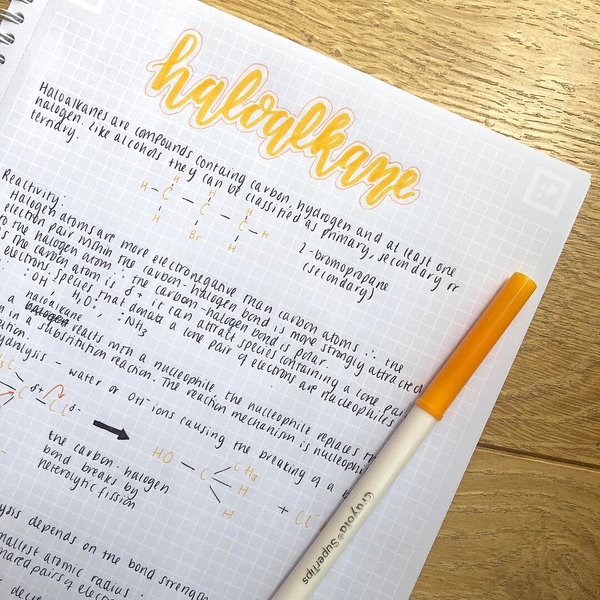 haloalkane
Haloalkanes are compounds containg carbon, hydrogen and at least one
halogen. Like alcohols they can be classified as primary, secondary or
tertiary.
H H H
H - C - C - C - H
H Br H
2-bromopropane
(secondary)
Reactivity:
Halogen atoms are more electronegative than carbon atoms ∴ the
electron pair within the carbon-halogen bond is more strongly attracted
to the halogen atom ∴ the carbon-halogen bond is polar.
the carbon atom is δ+ it can attract species containing a lone pair
electrons. species that donate a lone pair of electrons are nucleophiles
:OH⁻ H₂O: :NH₃
a haloalkane reacts with a nucleophile the nucleophile replaces the
in a substitution reaction. The reaction mechanism is nucleophilic
hydrolysis - water or OH⁻ ions causing the breaking of a
C δ+ - Cl δ-
the carbon-halogen
bond breaks by
heterolytic fission
HO - C CH₃ H H + Cl⁻
depends on the bond strength
smallest atomic radius :
shared pairs of
Crayola® SuperTips